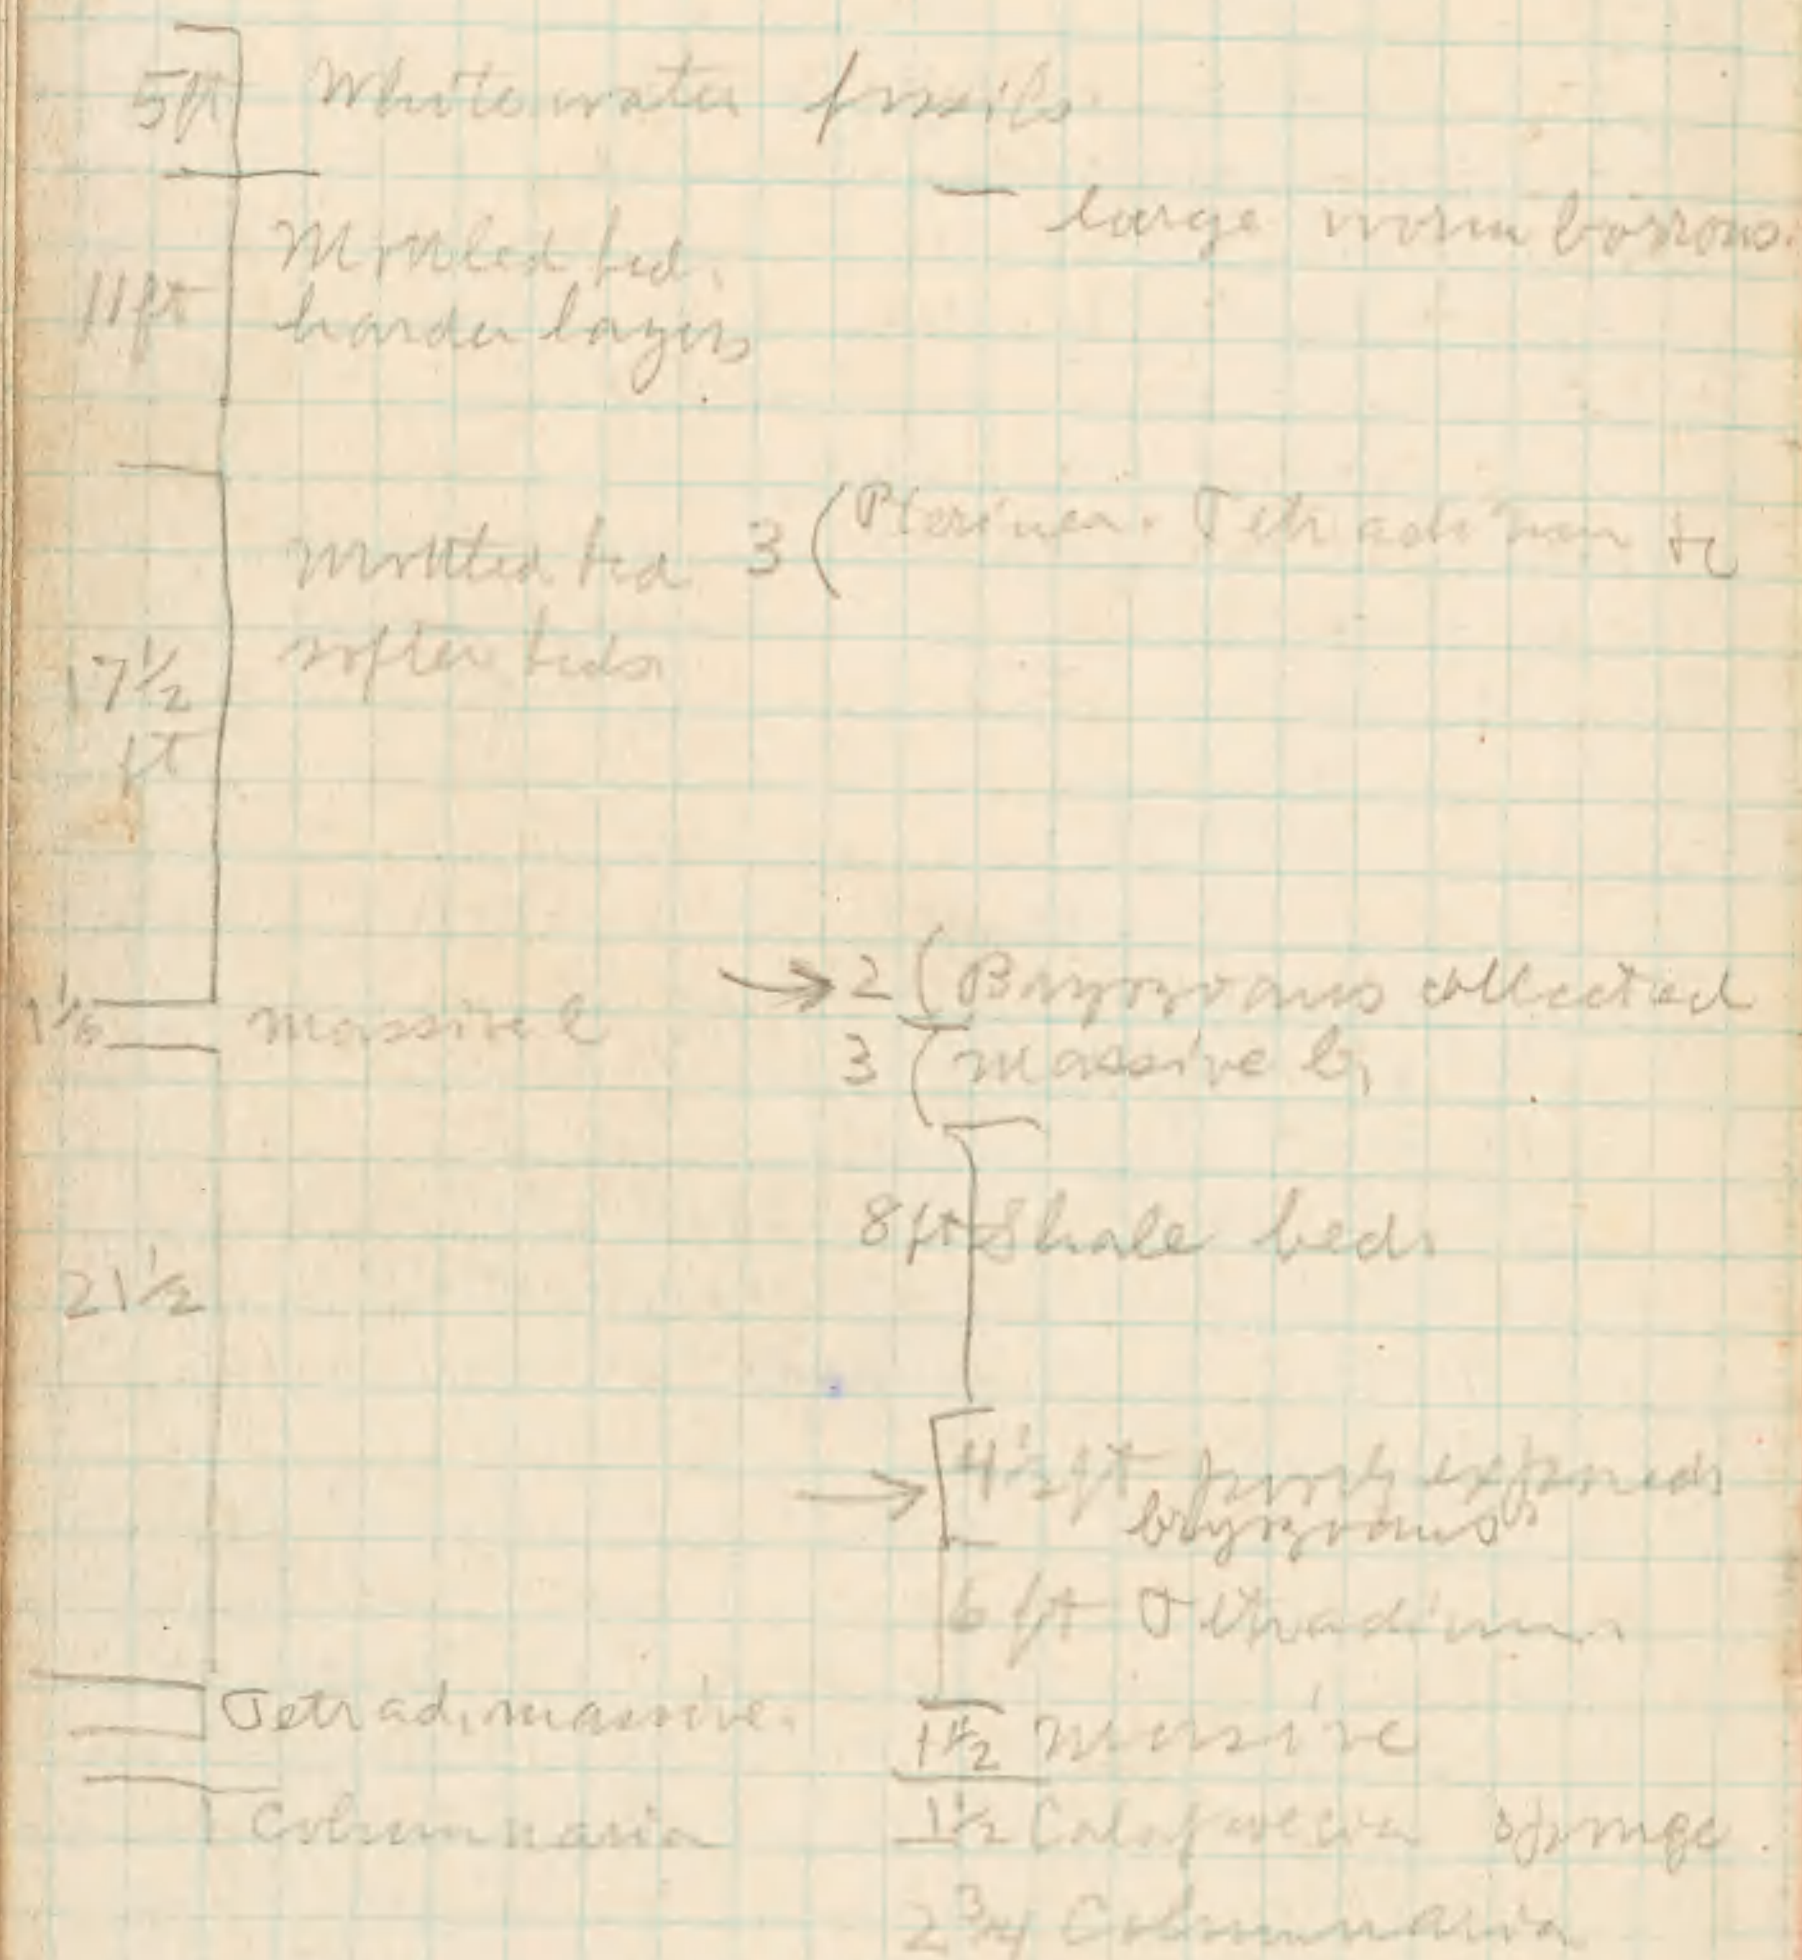 5ft Whitewater fossils.
— large worm borrows.
11ft Mottled bed.
harder layers
Mottled bed 3 (Pterinea. Tetradium &c
17½ softer beds
ft
→ 2 (Bryozoans collected
massive l
3 (massive b,
8 ft Shale beds
21½
→ 4½ ft poorly exposed,
bryozoans
6 ft Tetradium.
Tetrad. massive.
1½ massive
Columnaria
1½ Calapoecia sponge.
2¾ Columnaria